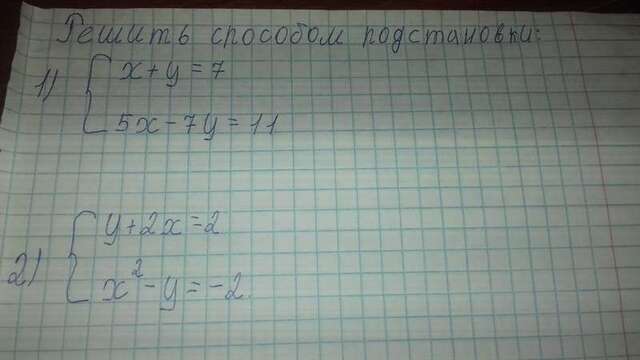 Решить способом подстановки:
1) { x + y = 7
5x - 7y = 11
2) { y + 2x = 2
x² - y = -2